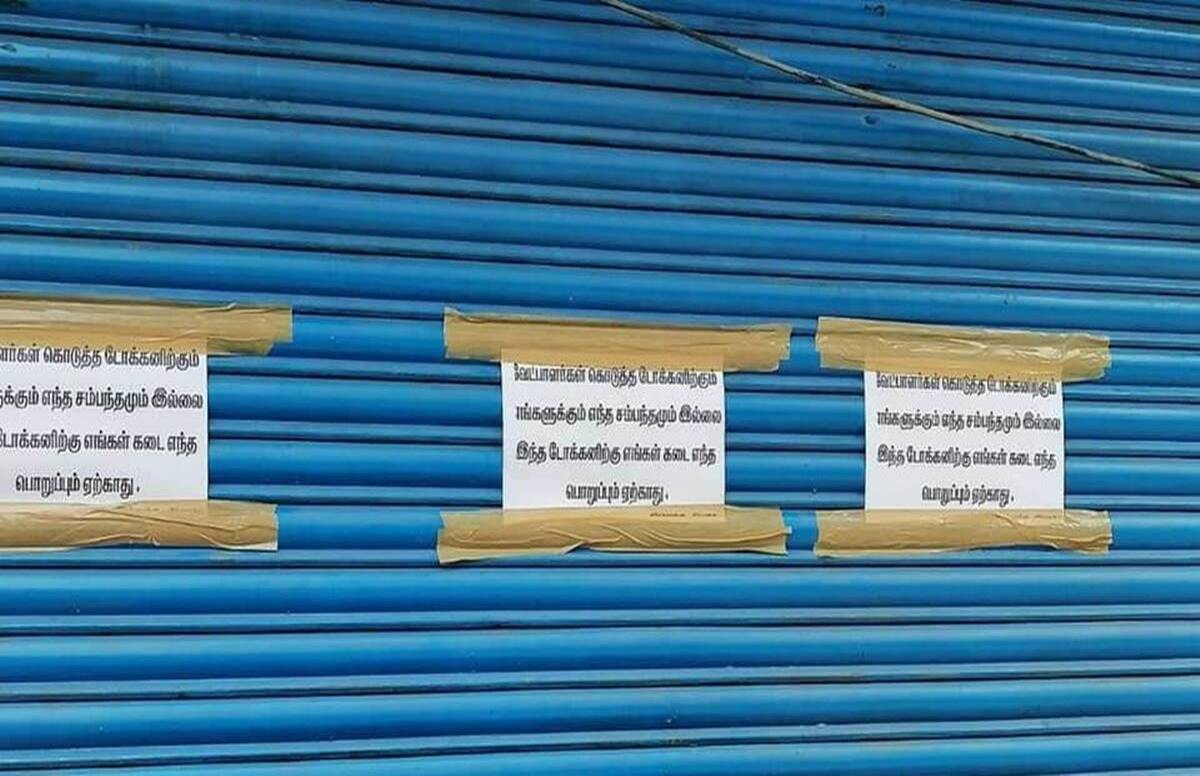 கொடுத்த டோக்கனிற்கும்
எந்த சம்பந்தமும் இல்லை
டோக்கனிற்கு எங்கள் கடை எந்த
பொறுப்பும் ஏற்காது .
வேட்பாளர்கள் கொடுத்த டோக்கனிற்கும்
எங்களுக்கும் எந்த சம்பந்தமும் இல்லை
இந்த டோக்கனிற்கு எங்கள் கடை எந்த
பொறுப்பும் ஏற்காது .
வேட்பாளர்கள் கொடுத்த டோக்கனிற்கும்
எங்களுக்கும் எந்த சம்பந்தமும் இல்லை
இந்த டோக்கனிற்கு எங்கள் கடை எந்த
பொறுப்பும் ஏற்காது .